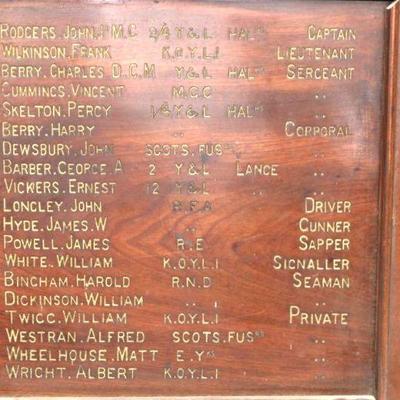 RODGERS.JOHN.P M.C 2/4 Y & L HALRS CAPTAIN
WILKINSON.FRANK K.O.Y.L.I LIEUTENANT
BERRY.CHARLES D.C.M Y & L HALRS SERGEANT
CUMMINGS.VINCENT M.G.C ..
SKELTON.PERCY 1/4 Y & L HALRS ..
BERRY.HARRY .. CORPORAL
DEWSBURY.JOHN SCOTS.FUSRS ..
BARBER.GEORGE.A 2 Y & L LANCE ..
VICKERS.ERNEST 12 Y & L .. ..
LONGLEY.JOHN R.F.A DRIVER
HYDE.JAMES.W .. GUNNER
POWELL.JAMES R.E SAPPER
WHITE.WILLIAM K.O.Y.L.I SIGNALLER
BINGHAM.HAROLD R.N.D SEAMAN
DICKINSON.WILLIAM .. ..
TWIGG.WILLIAM K.O.Y.L.I PRIVATE
WESTRAN.ALFRED SCOTS.FUSRS ..
WHEELHOUSE.MATT E.YKS ..
WRIGHT.ALBERT K.O.Y.L.I ..